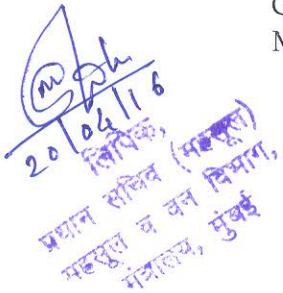 20/04/16
लिपिक,
प्रधान सचिव (महसूल)
महसूल व वन विभाग,
मंत्रालय, मुंबई